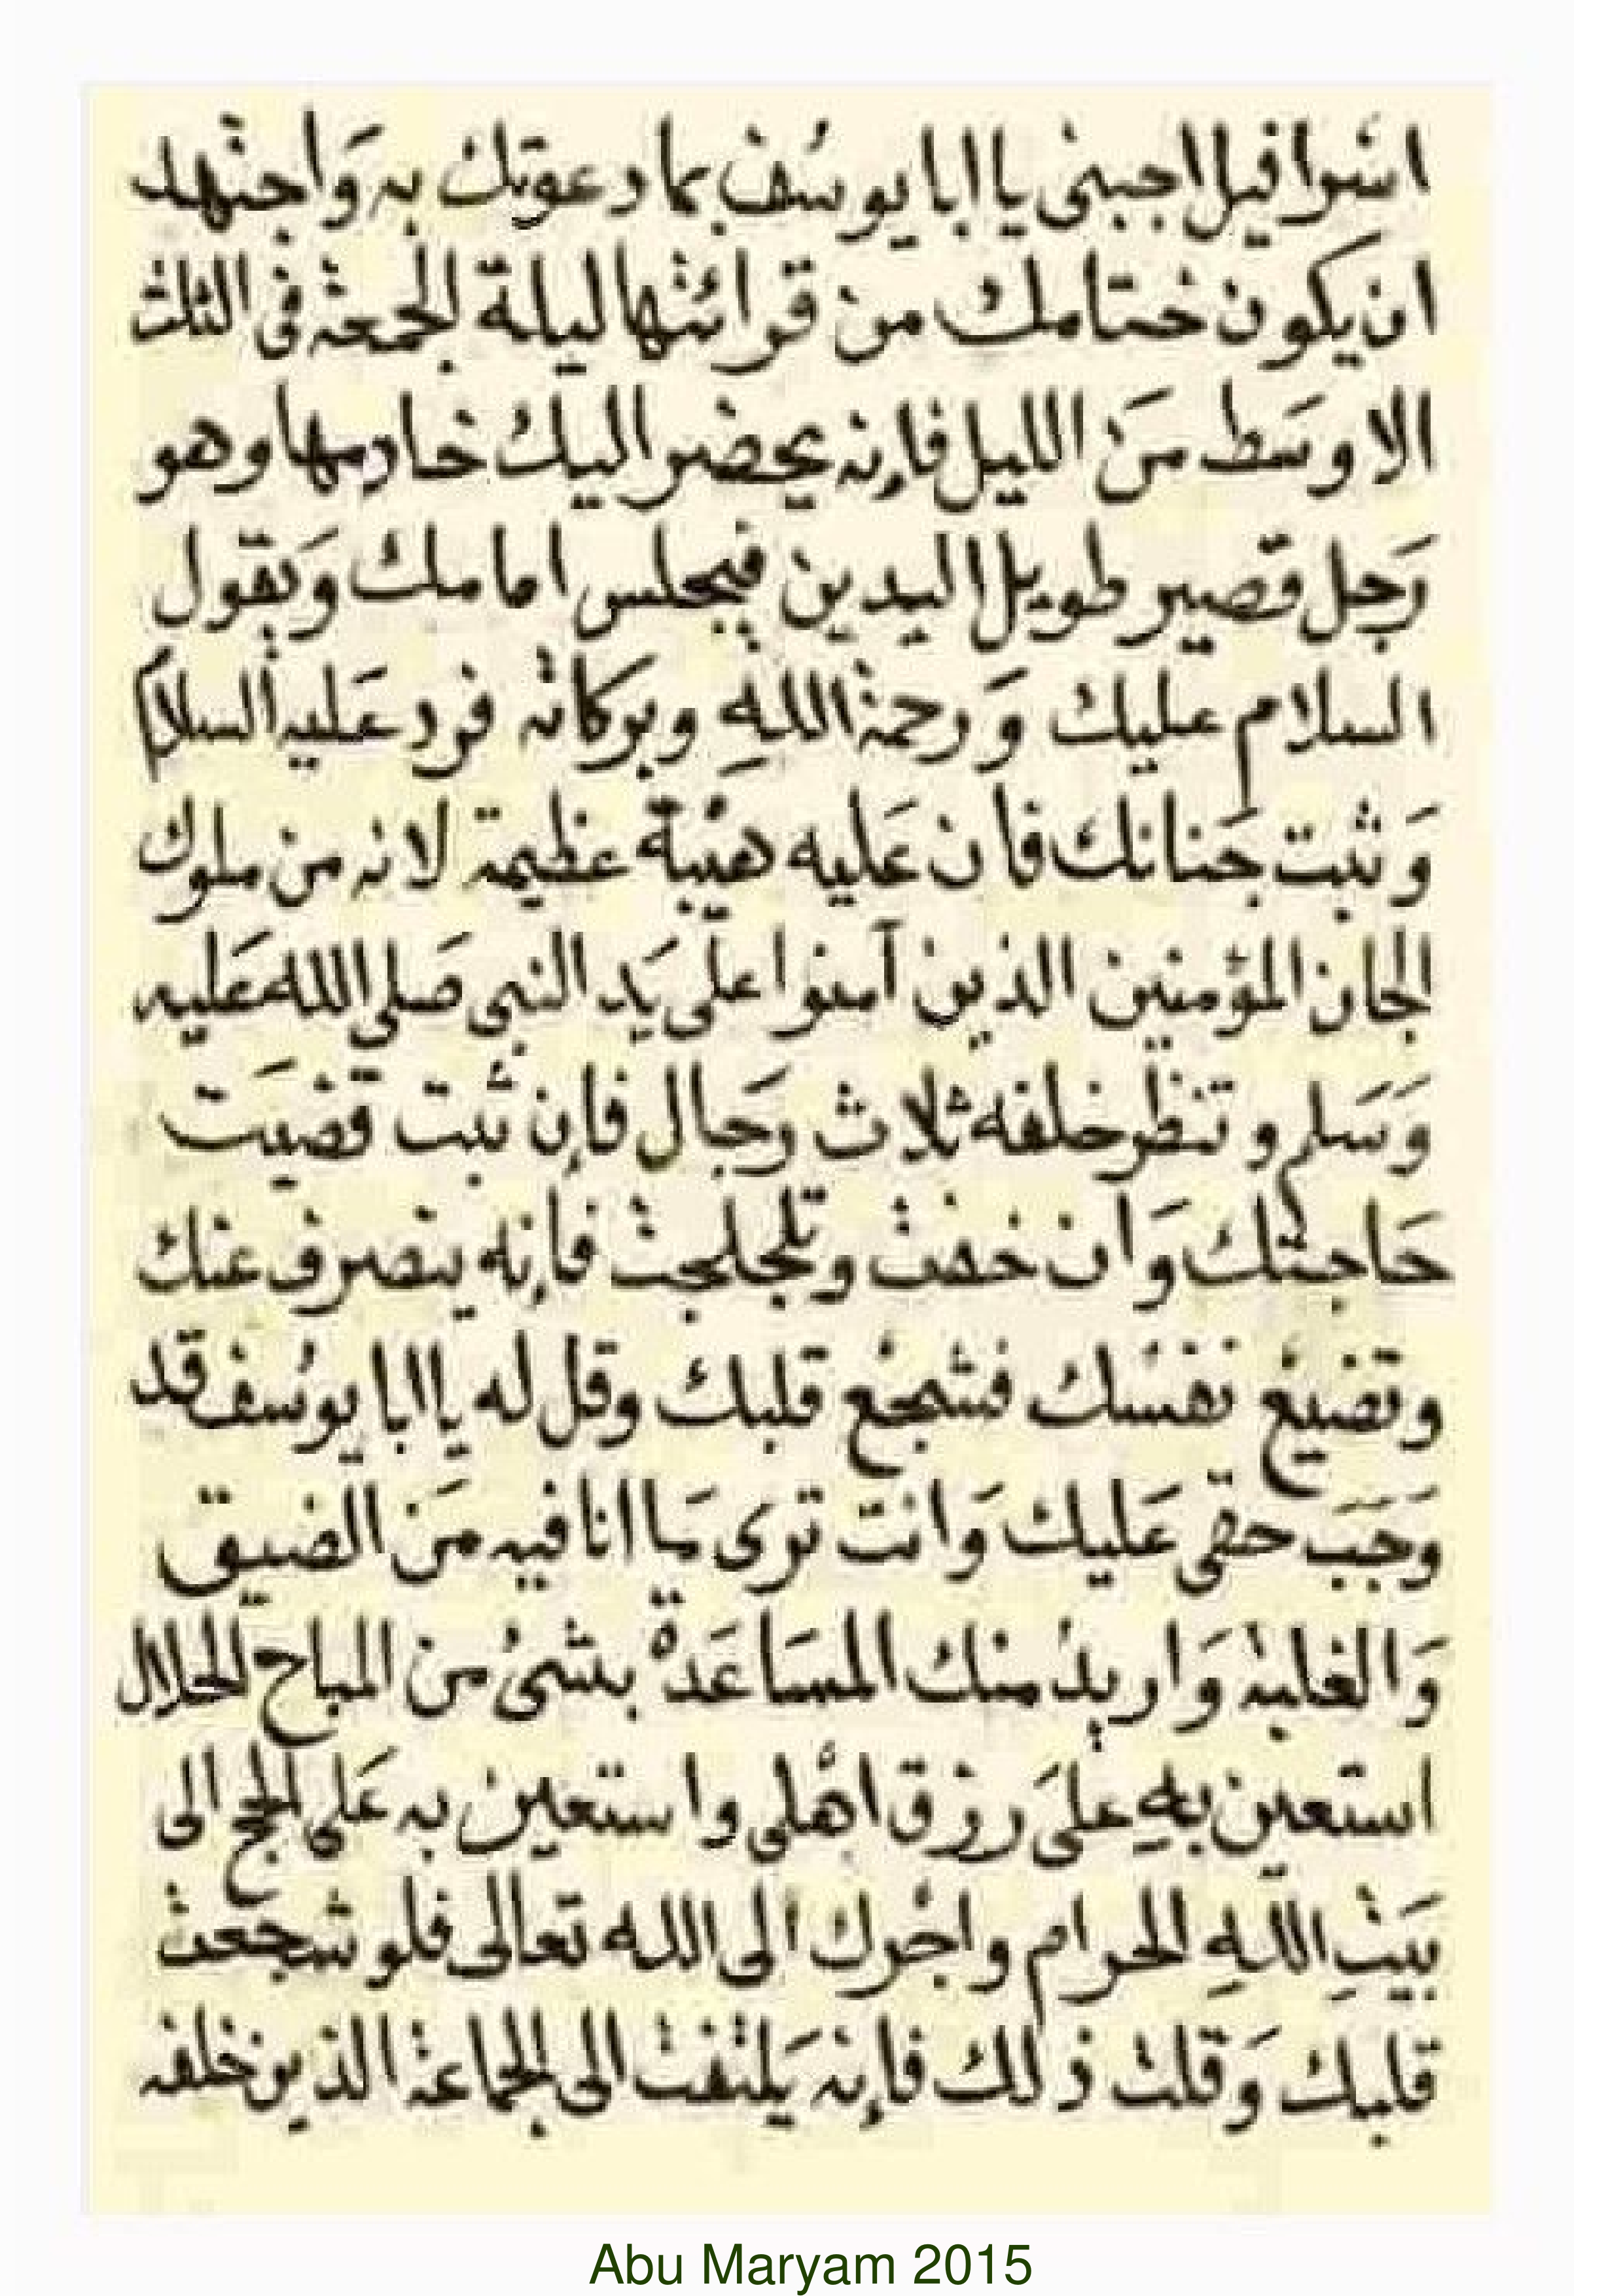 اسرافيل اجبنى يا ابا يوسُف بما دعوتك به وَاجتهد
ان يكون ختامك من قرائتها ليلة الجمعة فى الثلث
الاوسَط منَ الليل فإنه يحضر اليك خادمها وهو
رَجل قصير طويل اليدين فيجلس امامك وَيقول
السلام عليك وَرحمة اللهِ وبركاته فرد عَليه السلام
وَثبت جَنانك فان عَليه هيْبة عظيمة لانه من ملوك
الجان المؤمنين الذين آمنوا على يَد النبى صَلى الله عَليه
وَسَلم وتنظر خلفه ثلاث رجَال فإن ثبت قضيَت
حَاجتك وَان خفت وتلجلجت فإنه ينصرف عنك
وتضيع نفسك فشجع قلبك وقل له يا ابا يوسُف قد
وَجَبَ حقى عَليك وَانت ترى مَا انا فيه مَن الضيق
وَالغلبة وَاريد منك المسَاعَدة بشئ من المباح الحلال
استعين بهِ على رزق اهلى واستعين به عَلى الحج الى
بَيتِ اللهِ الحرام واجرك الى الله تعالى فلو شجعت
قلبك وَقلت ذلك فإنه يَلتفت الى الجماعة الذين خلفه
Abu Maryam 2015